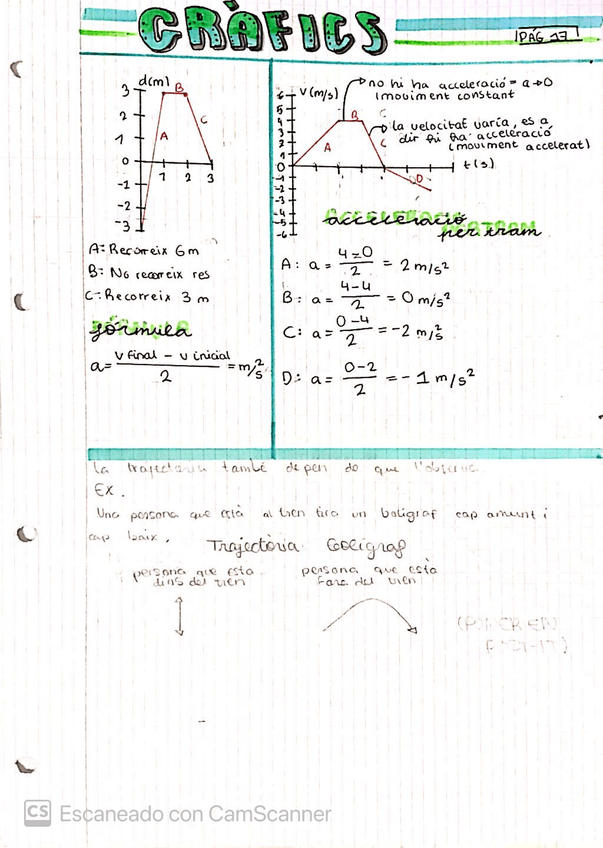 GRÀFICS
PÀG 17
d(m)
3
2
1
0
-1
-2
-3
1 2 3
A
B
C
A: Recorreix 6 m
B: No recorreix res
C: Recorreix 3 m
fórmula
a= v final - v inicial / 2 = m/s²
v (m/s)
no hi ha acceleració = a→0
(moviment constant
la velocitat varia, es a
dir hi ha acceleració
(moviment accelerat)
6
5
4
3
2
1
0
-1
-2
-3
-4
-5
-6
A
B
C
D
t(s)
acceleració
per tram
A: a = 4-0 / 2 = 2 m/s²
B: a = 4-4 / 2 = 0 m/s²
C: a = 0-4 / 2 = -2 m/s²
D: a = 0-2 / 2 = -1 m/s²
La trajectòria també depen de que l'observa.
Ex.
Una persona que està al tren tira un boligraf cap amunt i
cap baix.
Trajectòria Boligraf
persona que esta
dins del tren
persona que està
fora del tren
CS Escaneado con CamScanner